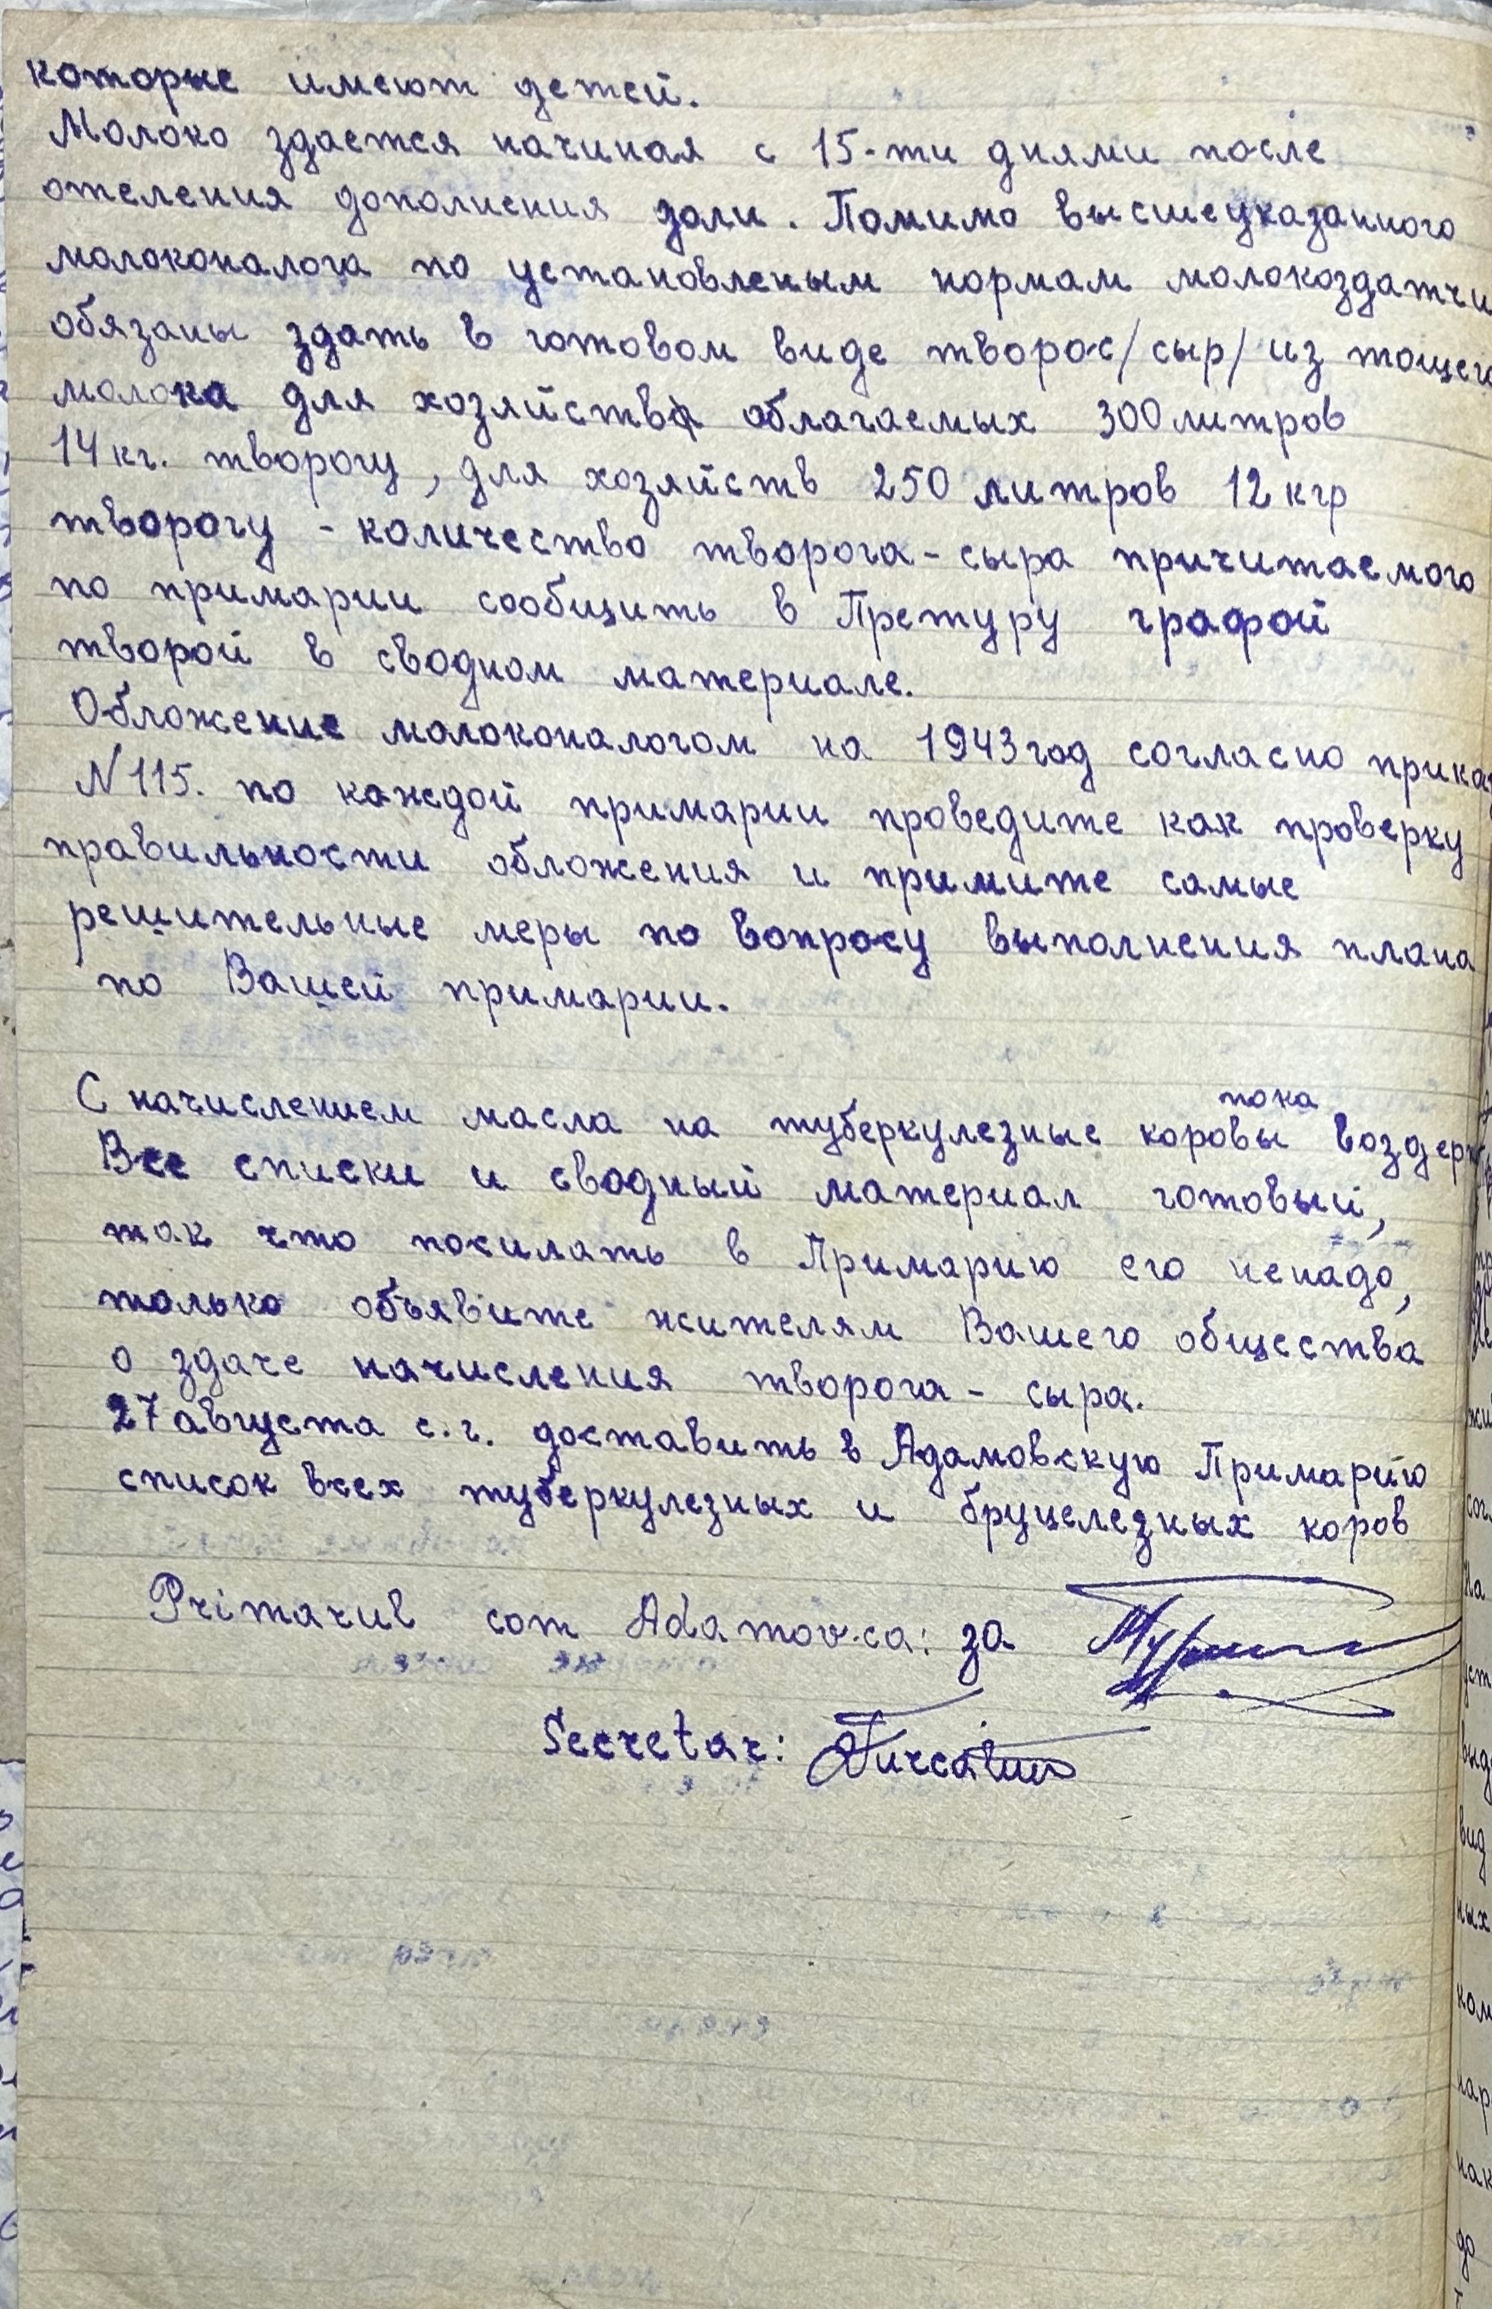 которые имеют детей.
Молоко здается начиная с 15-ти днями после
отеления дополнения доли. Помимо высшеуказанного
молоконалога по установленым нормам молокоздатчи
обязаны здать в готовом виде творог/сыр/ из тощего
молока для хозяйства облагаемых 300 литров
14 кг. творогу, для хозяйств 250 литров 12 кгр
творогу - количество творога - сыра причитаемого
по примарии сообщить в Претуру графой
творой в сводном материале.
Обложение молоконалогом на 1943 год согласно прика
N 115. по каждой примарии проведите как проверку
правильности обложения и примите самые
решительные меры по вопросу выполнения плана
по Вашей примарии.
пока
С начислением масла на туберкулезные коровы воздерж
Все списки и сводный материал готовый,
так что посилать в Примарию его ненадо,
только объявите жителям Вашего общества
о здаче начисления творога - сыра.
27 августа с.г. доставить в Адамовскую Примарию
список всех туберкулезных и бруцелезных коров
Primarul com Adamovca: за
Secretar: